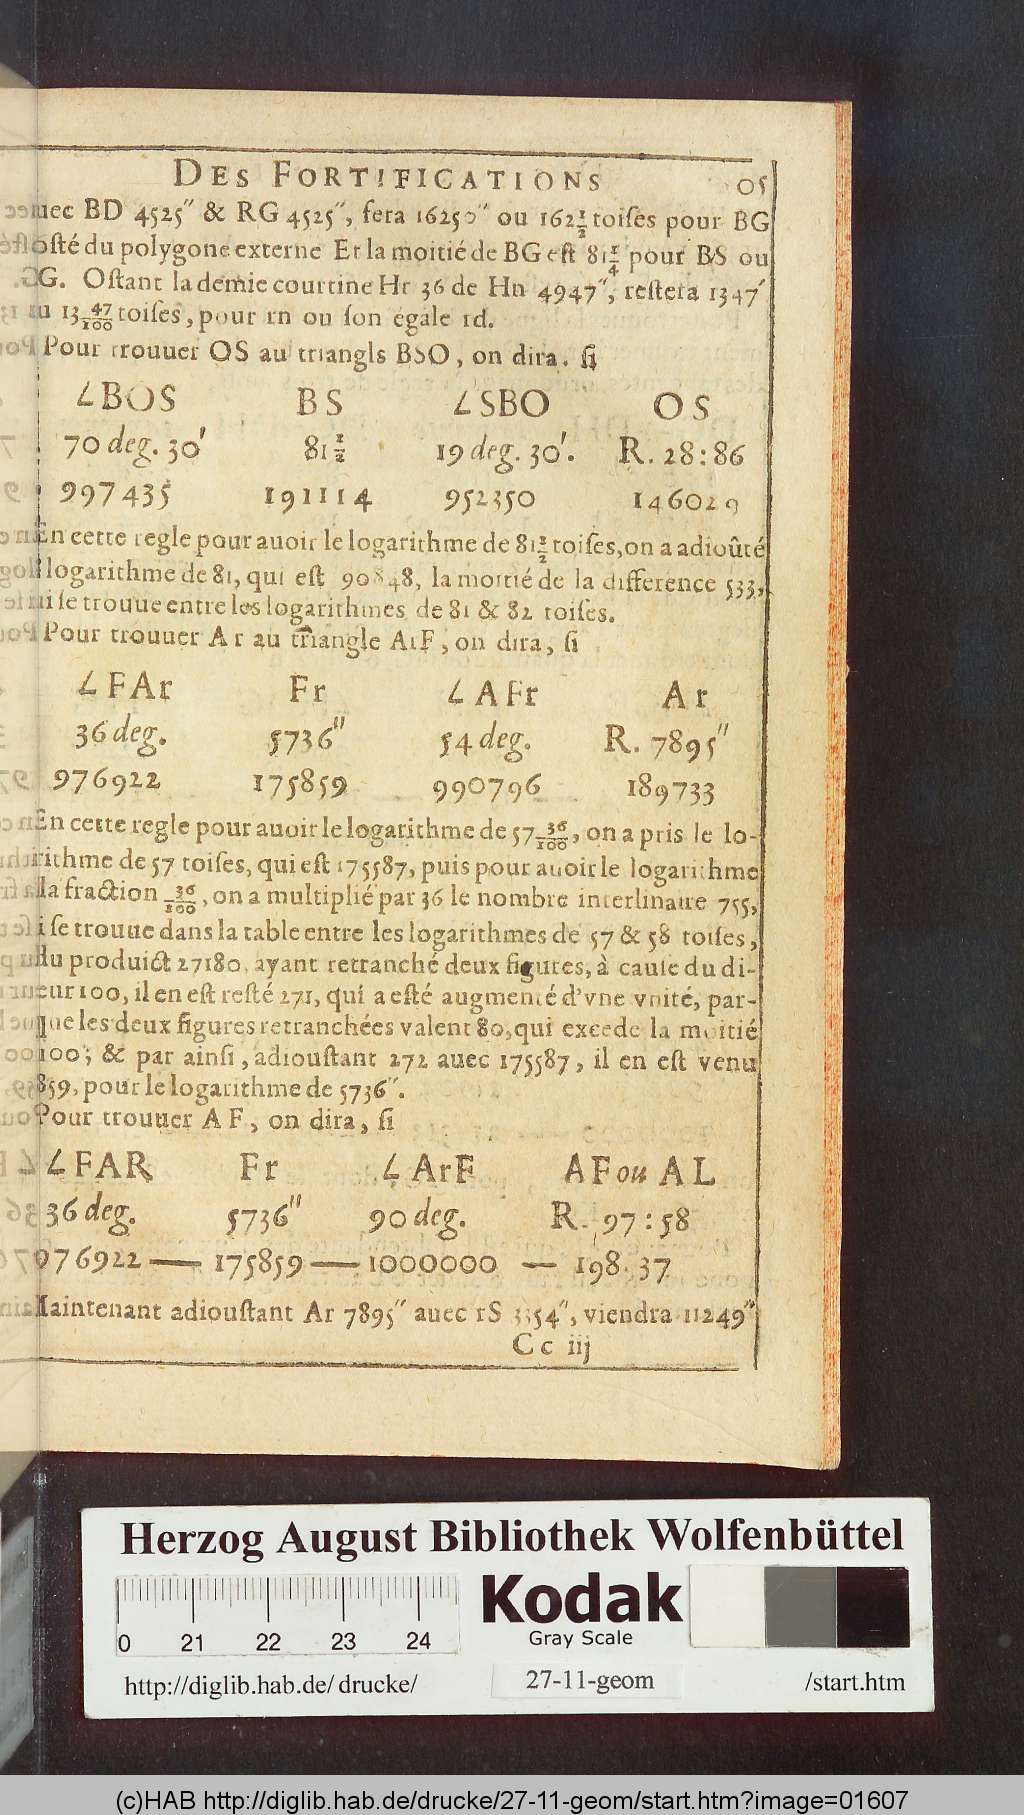 DES FORTIFICATIONS 05
uec BD 4525″ & RG 4525″, ſera 16250″ ou 162½ toiſes pour BG
oſté du polygone externe Et la moitié de BG eſt 81¼ pour BS ou
G. Oſtant la demie courtine Hr 36 de Hn 4947″, reſtera 1347″
u 13 47/100 toiſes, pour rn ou ſon egale rd.
Pour trouuer OS au triangls BSO, on dira. ſi
∠BOS BS ∠SBO OS
70 deg. 30′ 81½ 19 deg. 30′. R. 28:86
997435 191114 952350 146029
En cette regle pour auoir le logarithme de 81½ toiſes, on a adioûté
logarithme de 81, qui eſt 90848, la moitié de la difference 533,
i ſe trouue entre les logarithmes de 81 & 82 toiſes.
Pour trouuer Ar au triangle ArF, on dira, ſi
∠FAr Fr ∠AFr Ar
36 deg. 5736″ 54 deg. R. 7895″
976922 175859 990796 189733
En cette regle pour auoir le logarithme de 57 36/100, on a pris le lo-
rithme de 57 toiſes, qui eſt 175587, puis pour auoir le logarithme
la fraction 36/100, on a multiplié par 36 le nombre interlinaire 755,
i ſe trouue dans la table entre les logarithmes de 57 & 58 toiſes,
du produict 27180, ayant retranché deux figures, à cauſe du di-
eur 100, il en eſt reſté 271, qui a eſté augmenté d'vne vnité, par-
que les deux figures retranchées valent 80, qui excede la moitié
100; & par ainſi, adiouſtant 272 auec 175587, il en eſt venu
859, pour le logarithme de 5736″.
Pour trouuer AF, on dira, ſi
∠FAR Fr ∠ArF AF ou AL
36 deg. 5736″ 90 deg. R. 97:58
976922 — 175859 — 1000000 — 198 37
Maintenant adiouſtant Ar 7895″ auec rS 3354″, viendra 11249″
Cc iij
Herzog August Bibliothek Wolfenbüttel
Kodak
Gray Scale
0 21 22 23 24
http://diglib.hab.de/drucke/ 27-11-geom /start.htm
(c)HAB http://diglib.hab.de/drucke/27-11-geom/start.htm?image=01607